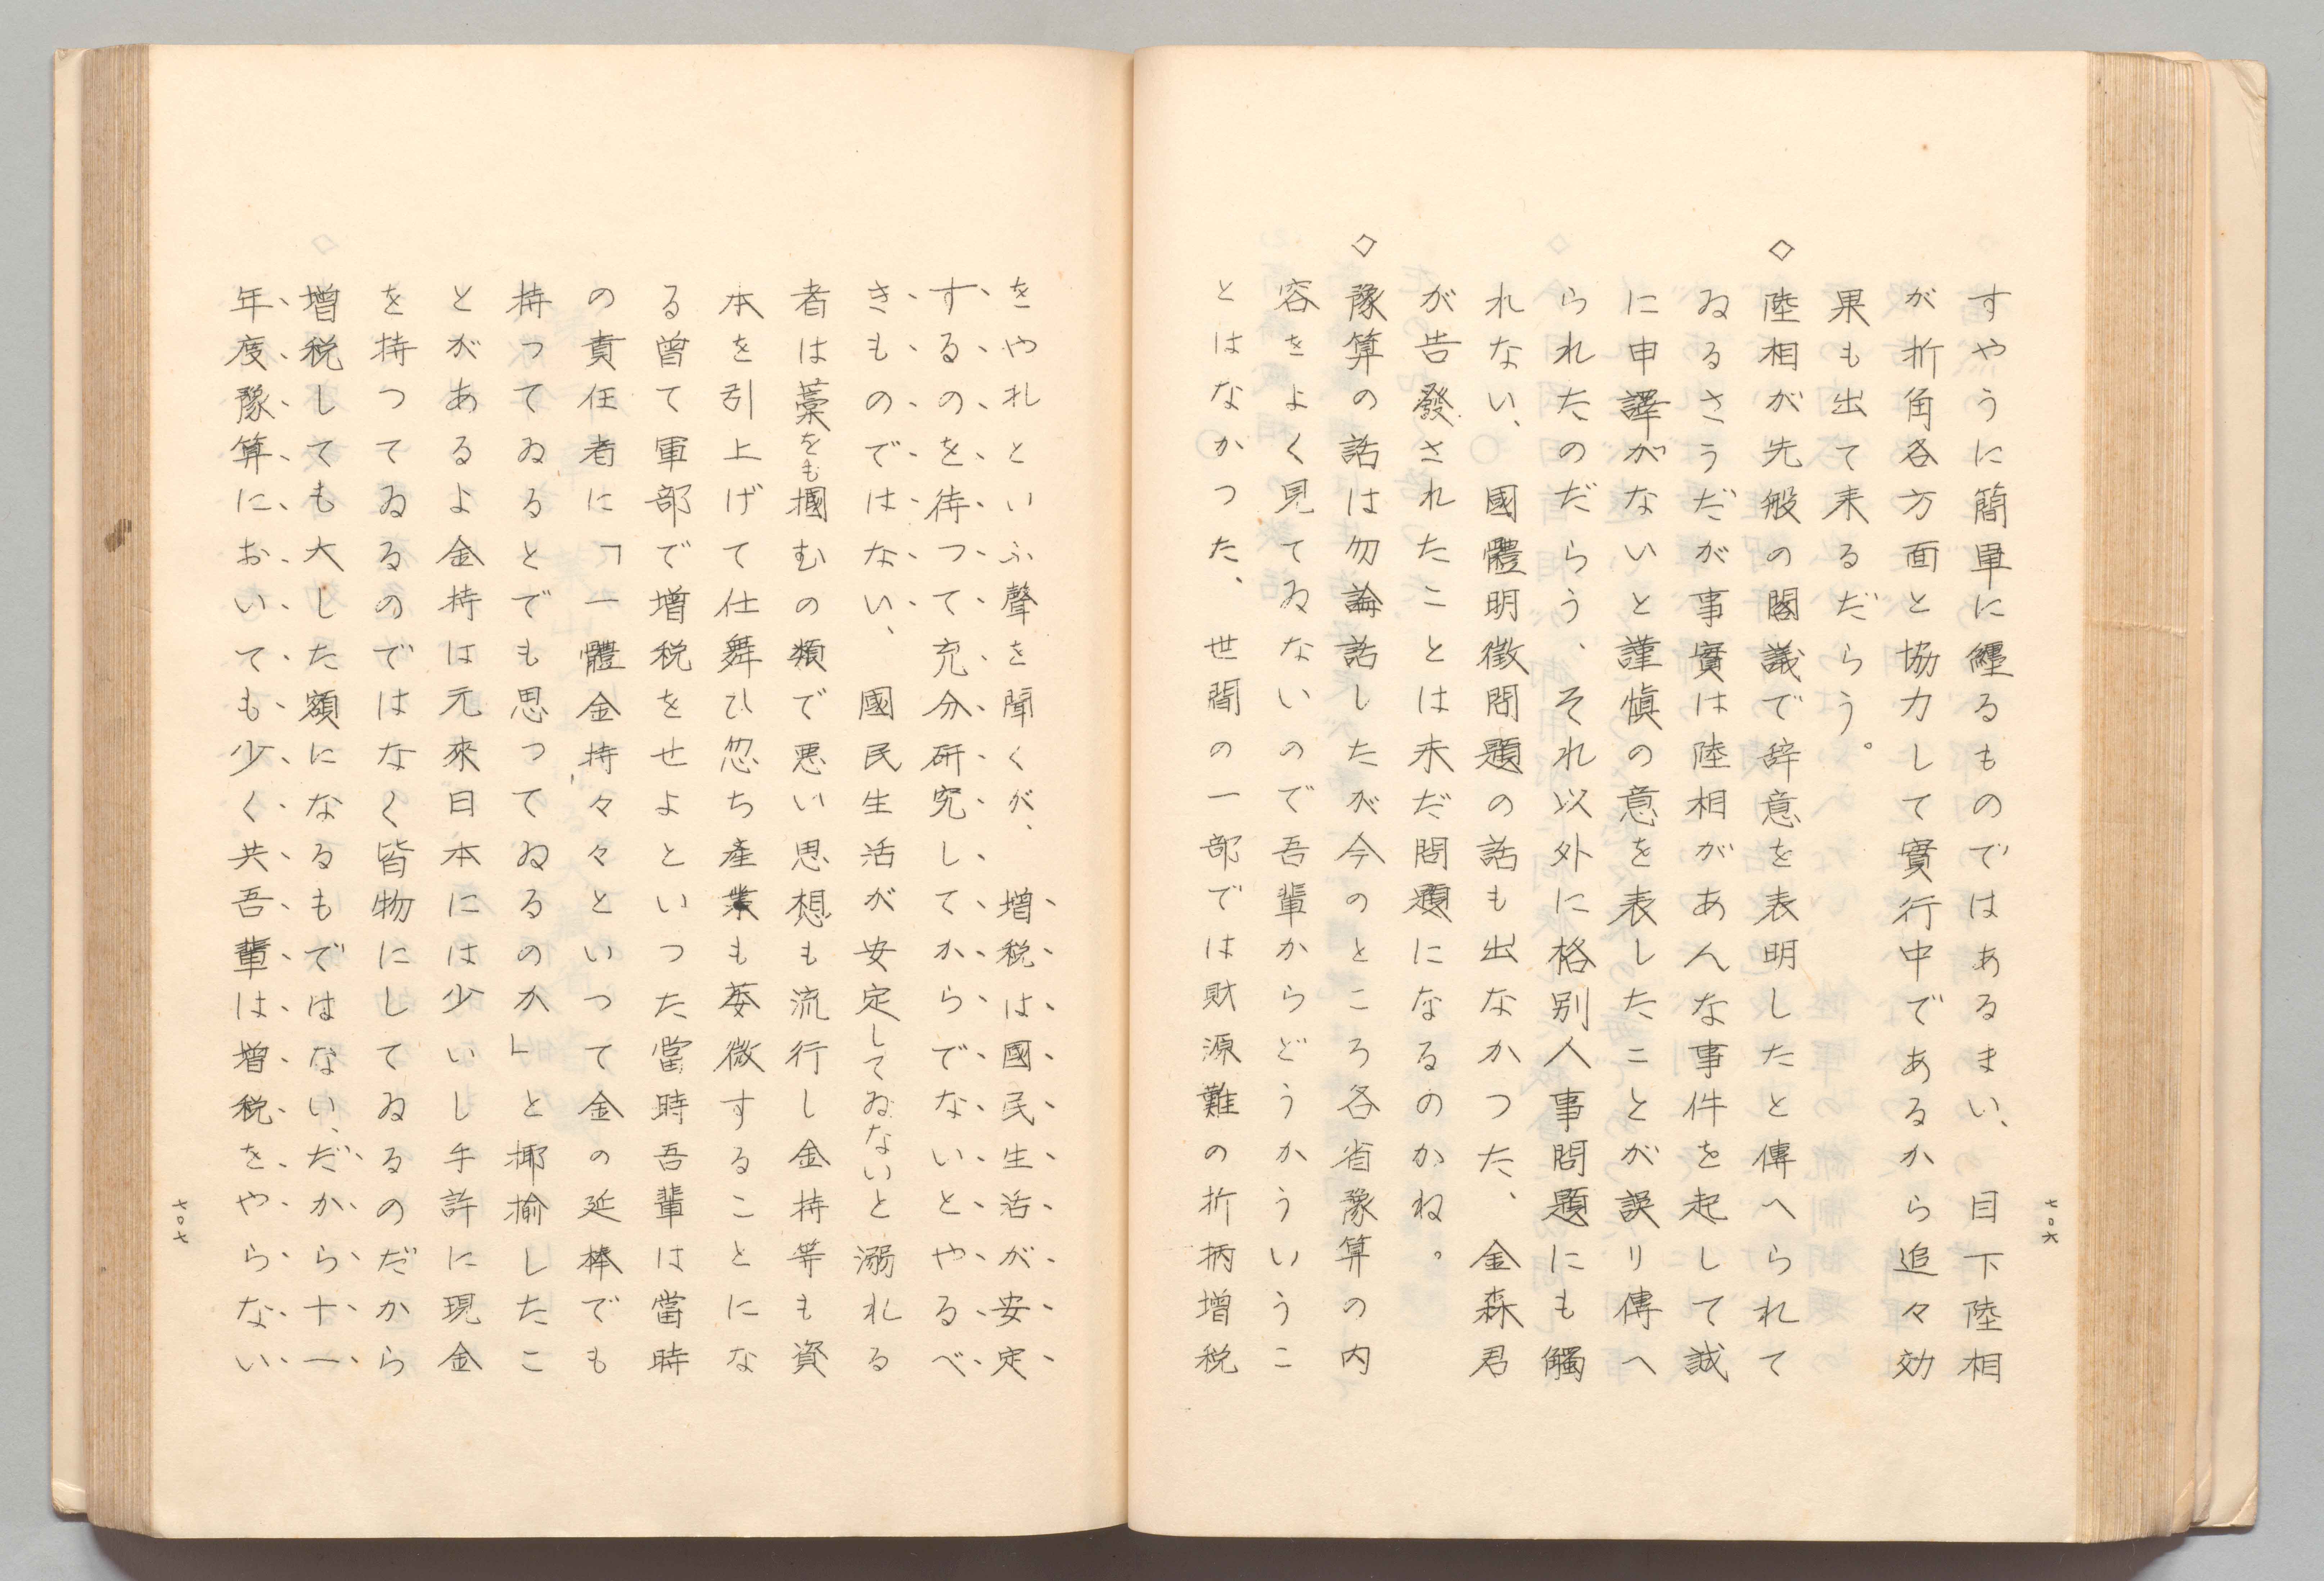 すやうに簡單に纒るものではあるまい、目下陸相
が折角各方面と協力して實行中であるから追々効
果も出て来るだらう。
◇陸相が先般の閣議で辞意を表明したと傳へられて
ゐるさうだが事實は陸相があんな事件を起して誠
に申譯がないと謹愼の意を表したことが誤リ傳へ
られたのだらう、それ以外に格別人事問題にも觸
れない、國體明徴問題の話も出なかつた、金森君
が告發されたことは未だ問題になるのかね。
◇豫算の話は勿論話したが今のところ各省豫算の内
容をよく見てゐないので吾輩からどうかういうこ
とはなかつた、世間の一部では財源難の折柄増税
七〇六
をやれといふ聲を聞くが、増税は國民生活が安定
するのを待つて充分研究してからでないとやるべ
きものではない、國民生活が安定してゐないと溺れる
者は藁をも摑むの類で悪い思想も流行し金持等も資
本を引上げて仕舞ひ忽ち產業も萎微することにな
る曽て軍部で増税をせよといつた當時吾輩は當時
の責任者に「一體金持々々といつて金の延棒でも
持つてゐるとでも思つてゐるのか」と揶揄したこ
とがあるよ金持は元來日本には少いし手許に現金
を持つてゐるのではなく皆物にしてゐるのだから
増税しても大した額になるもではない、だから十一
年度豫算においても少く共吾輩は増税をやらない
七〇七